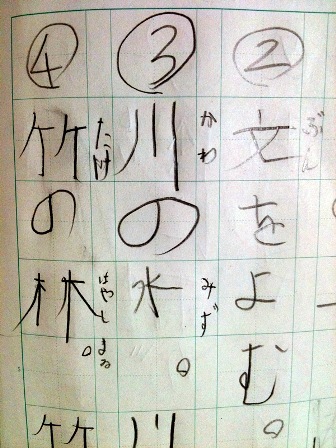 ②
文をよむ。
ぶん
③
川の水。
かわ
みず
川
④
竹の林。
たけ
はやし
まる
竹